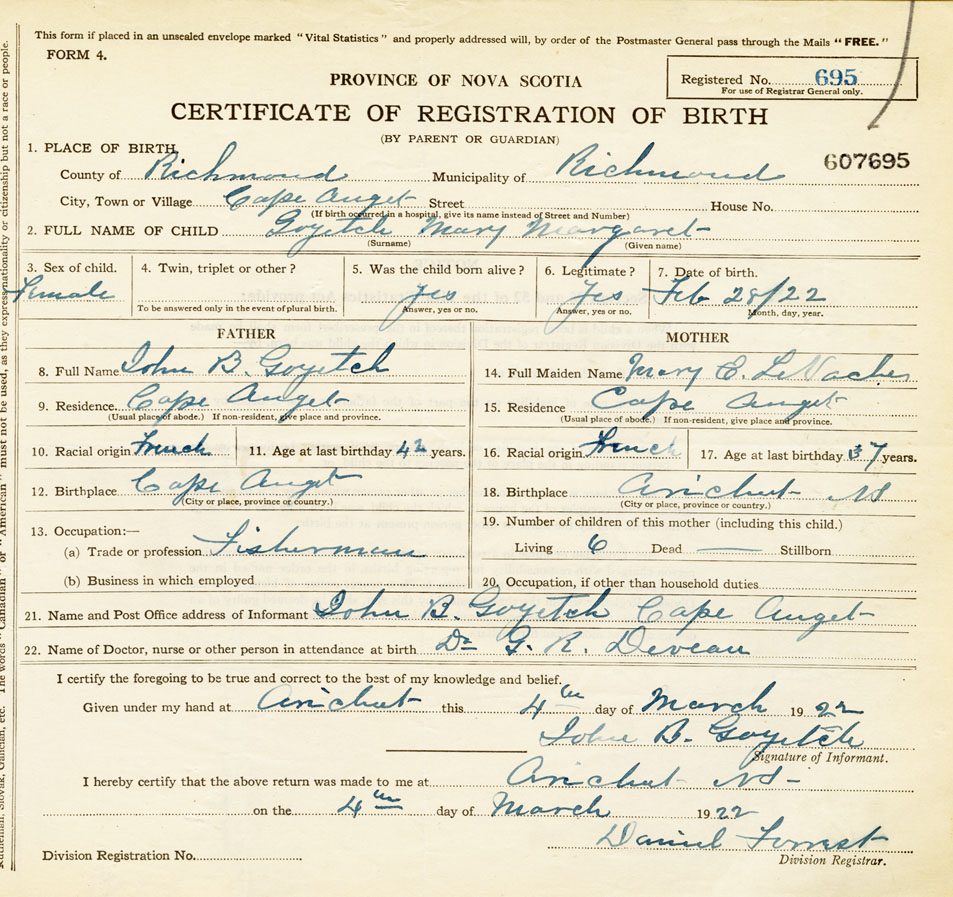 This form if placed in an unsealed envelope marked "Vital Statistics" and properly addressed will, by order of the Postmaster General pass through the Mails "FREE."
FORM 4.
PROVINCE OF NOVA SCOTIA
Registered No. 695
For use of Registrar General only.
CERTIFICATE OF REGISTRATION OF BIRTH
(BY PARENT OR GUARDIAN)
607695
1. PLACE OF BIRTH
County of Richmond Municipality of Richmond
City, Town or Village Cape Auget Street House No.
(If birth occurred in a hospital, give its name instead of Street and Number)
2. FULL NAME OF CHILD Goyetch Mary Margaret
(Surname) (Given name)
3. Sex of child. 4. Twin, triplet or other? 5. Was the child born alive? 6. Legitimate? 7. Date of birth.
Female Yes Yes Feb 28/22
To be answered only in the event of plural birth. Answer, yes or no. Answer, yes or no. Month, day, year.
FATHER
8. Full Name John B. Goyetch
9. Residence Cape Auget
(Usual place of abode.) If non-resident, give place and province.
10. Racial origin French 11. Age at last birthday 42 years.
12. Birthplace Cape Auget
(City or place, province or country.)
13. Occupation:—
(a) Trade or profession Fisherman
(b) Business in which employed
MOTHER
14. Full Maiden Name Mary E. LeVacher
15. Residence Cape Auget
(Usual place of abode.) If non-resident, give place and province.
16. Racial origin French 17. Age at last birthday 37 years.
18. Birthplace Arichat NS
(City or place, province or country.)
19. Number of children of this mother (including this child.)
Living 6 Dead — Stillborn
20. Occupation, if other than household duties
21. Name and Post Office address of Informant John B. Goyetch Cape Auget
22. Name of Doctor, nurse or other person in attendance at birth Dr G. R. Deveau
I certify the foregoing to be true and correct to the best of my knowledge and belief.
Given under my hand at Arichat this 4th day of March 1922
John B. Goyetch
Signature of Informant.
I hereby certify that the above return was made to me at Arichat NS
on the 4th day of March 1922
Daniel Forrest
Division Registrar.
Division Registration No.
Ruthenian, Slovak, Galician, etc. The words "Canadian" or "American" must not be used, as they express nationality or citizenship but not a race or people.